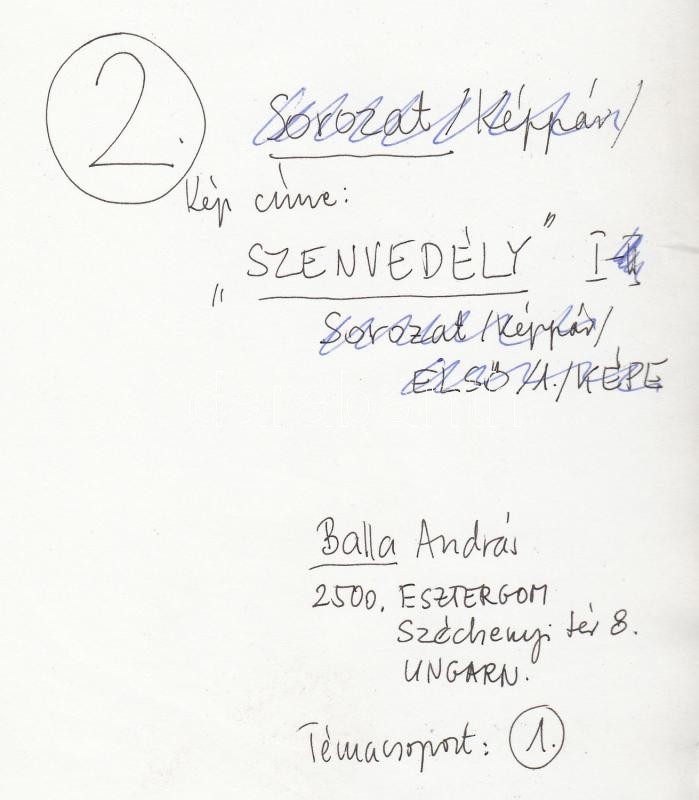 2.
Sorozat /Képpár/
Kép címe:
„SZENVEDÉLY" I-II
Sorozat /Képpár/
ELSŐ /1./ KÉPE
Balla András
2500. ESZTERGOM
Széchenyi tér 8.
UNGARN.
Témacsoport: 1.